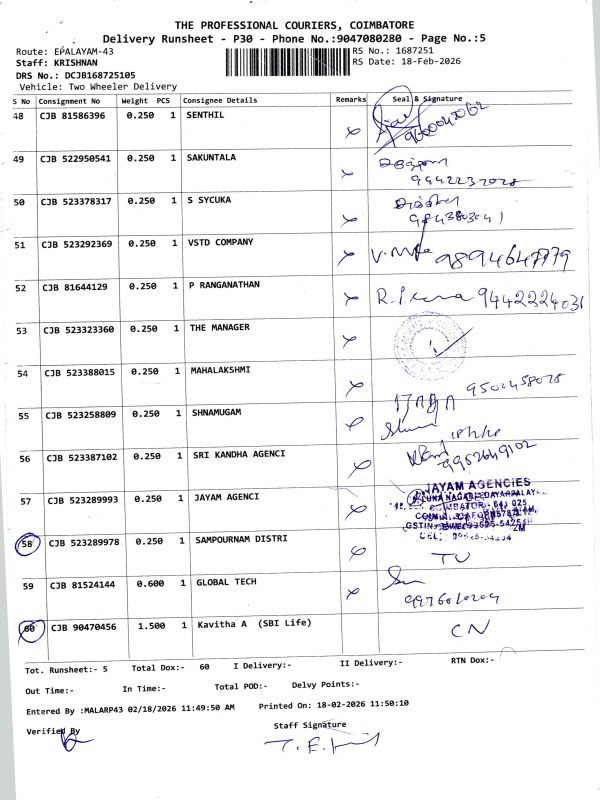 THE PROFESSIONAL COURIERS, COIMBATORE
Delivery Runsheet - P30 - Phone No.:9047080280 - Page No.:5
Route: EPALAYAM-43 RS No.: 1687251
Staff: KRISHNAN RS Date: 18-Feb-2026
DRS No.: DCJB168725105
Vehicle: Two Wheeler Delivery
S No Consignment No Weight PCS Consignee Details Remarks Seal & Signature
48 CJB 81586396 0.250 1 SENTHIL
49 CJB 522950541 0.250 1 SAKUNTALA
50 CJB 523378317 0.250 1 S SYCUKA
51 CJB 523292369 0.250 1 VSTD COMPANY
52 CJB 81644129 0.250 1 P RANGANATHAN 9442224031
53 CJB 523323360 0.250 1 THE MANAGER
54 CJB 523388015 0.250 1 MAHALAKSHMI 9502458078
55 CJB 523258809 0.250 1 SHNAMUGAM
56 CJB 523387102 0.250 1 SRI KANDHA AGENCI 9952649102
57 CJB 523289993 0.250 1 JAYAM AGENCI JAYAM AGENCIES
58 CJB 523289978 0.250 1 SAMPOURNAM DISTRI TU
59 CJB 81524144 0.600 1 GLOBAL TECH
60 CJB 90470456 1.500 1 Kavitha A (SBI Life) CN
Tot. Runsheet:- 5 Total Dox:- 60 I Delivery:- II Delivery:- RTN Dox:-
Out Time:- In Time:- Total POD:- Delvy Points:-
Entered By :MALARP43 02/18/2026 11:49:50 AM Printed On: 18-02-2026 11:50:10
Verified By Staff Signature